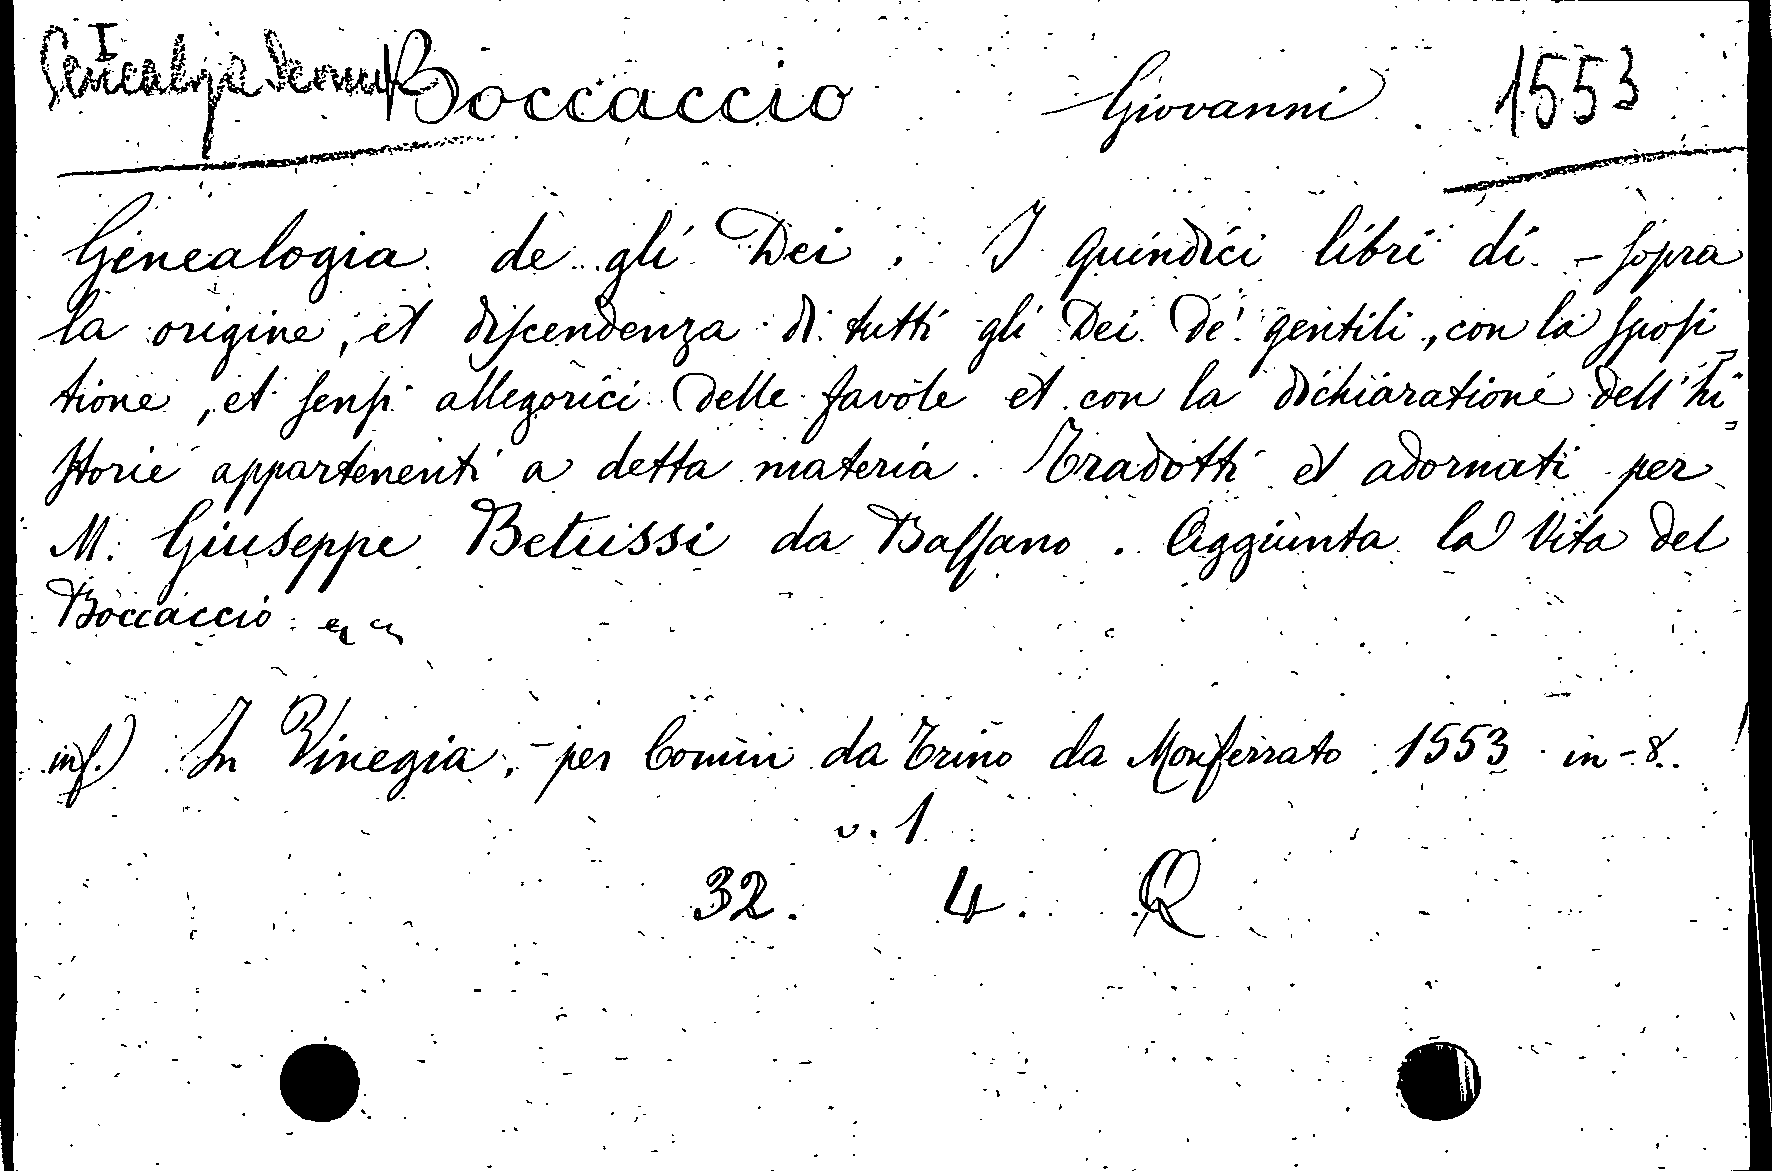 Boccaccio Giovanni 1553
Genealogia de gli Dei. I quindici libri di - sopra
la origine, et discendenza di tutti gli Dei de' gentili, con la sposi
tione, et sensi allegorici delle favole et con la dichiaratione dell'hi=
storie appartenenti a detta materia. Tradotti et adornati per
M. Giuseppe Betussi da Bassano. Aggiunta la Vita del
Boccaccio
inf.) In Vinegia, - per Comin da Trino da Monferrato 1553 in-8.
v. 1
32. 4. Q